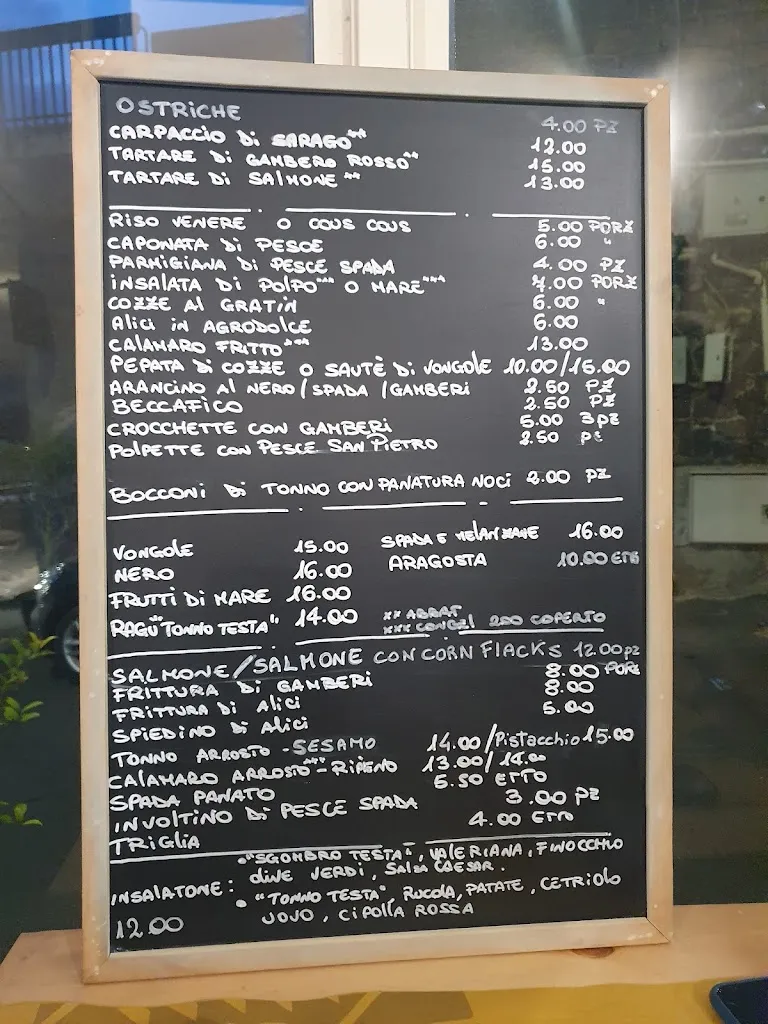 OSTRICHE 4.00 PZ
CARPACCIO Di SARAGO** 12.00
TARTARE Di GAMBERO ROSSO** 15.00
TARTARE Di SALMONE ** 13.00
RISO VENERE O COUS COUS 5.00 PORZ
CAPONATA Di PESCE 6.00 "
PARMIGIANA Di PESCE SPADA 4.00 PZ
INSALATA Di POLPO*** O MARE*** 7.00 PORZ
COZZE Al GRATIN 6.00 "
Alici in AGRODOLCE 6.00
CALAMARO FRITTO*** 13.00
PEPATA Di COZZE O SAUTÈ Di VONGOLE 10.00/15.00
ARANCINO Al NERO/SPADA/GAMBERI 2.50 PZ
BECCAFICO 2.50 PZ
CROCCHETTE CON GAMBERI 5.00 3pz
POLPETTE CON PESCE SAN PIETRO 2.50 pz
BOCCONI Di TONNO CON PANATURA NOCI 2.00 PZ
VONGOLE 15.00 SPADA E MELANZANE 16.00
NERO 16.00 ARAGOSTA 10.00 ETTO
FRUTTI Di MARE 16.00
RAGÙ "TONNO TESTA" 14.00 ** ABBAT
*** CONGEL 2.00 COPERTO
SALMONE/SALMONE CON CORN FLACKS 12.00 pz
FRITTURA Di GAMBERI 8.00 PORZ
FRITTURA Di Alici 8.00
SPIEDINO Di Alici 5.00
TONNO ARROSTO - SESAMO 14.00/Pistacchio 15.00
CALAMARO ARROSTO*** - RIPIENO 13.00/14.00
SPADA PANATO 5.50 ETTO
INVOLTINO Di PESCE SPADA 3.00 PZ
TRIGLIA 4.00 ETTO
• "SGOMBRO TESTA", VALERIANA, FINOCCHIO
OLIVE VERDI, SALSA CAESAR.
INSALATONE: • "TONNO TESTA", RUCOLA, PATATE, CETRIOLO
12.00 UOVO, CIPOLLA ROSSA